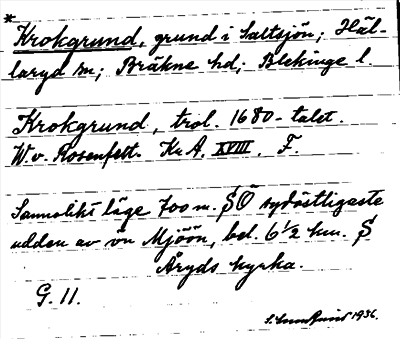 *
Krokgrund, grund i Saltsjön; Häl-
laryd sn; Bräkne hd; Blekinge l.
Krokgrund, trol. 1680-talet.
W. v. Rosenfelt. Kr. A. XVIII. F.
Sannolikt läge 700 m. SÖ sydöstligaste
udden av ön Mjöön, bel. 6 1/2 km. S
Åryds kyrka.
G. 11.
1936.